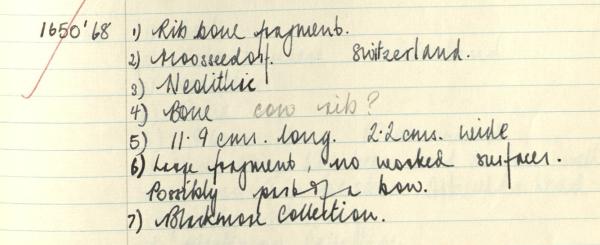 1650'68 1) Rib bone fragment.
2) Moosseedorf. Switzerland.
3) Neolithic
4) Bone cow rib?
5) 11.9 cms. long. 2.2 cms. wide
6) Large fragment, no worked surfaces.
Possibly part of a bow.
7) Blackmore Collection.